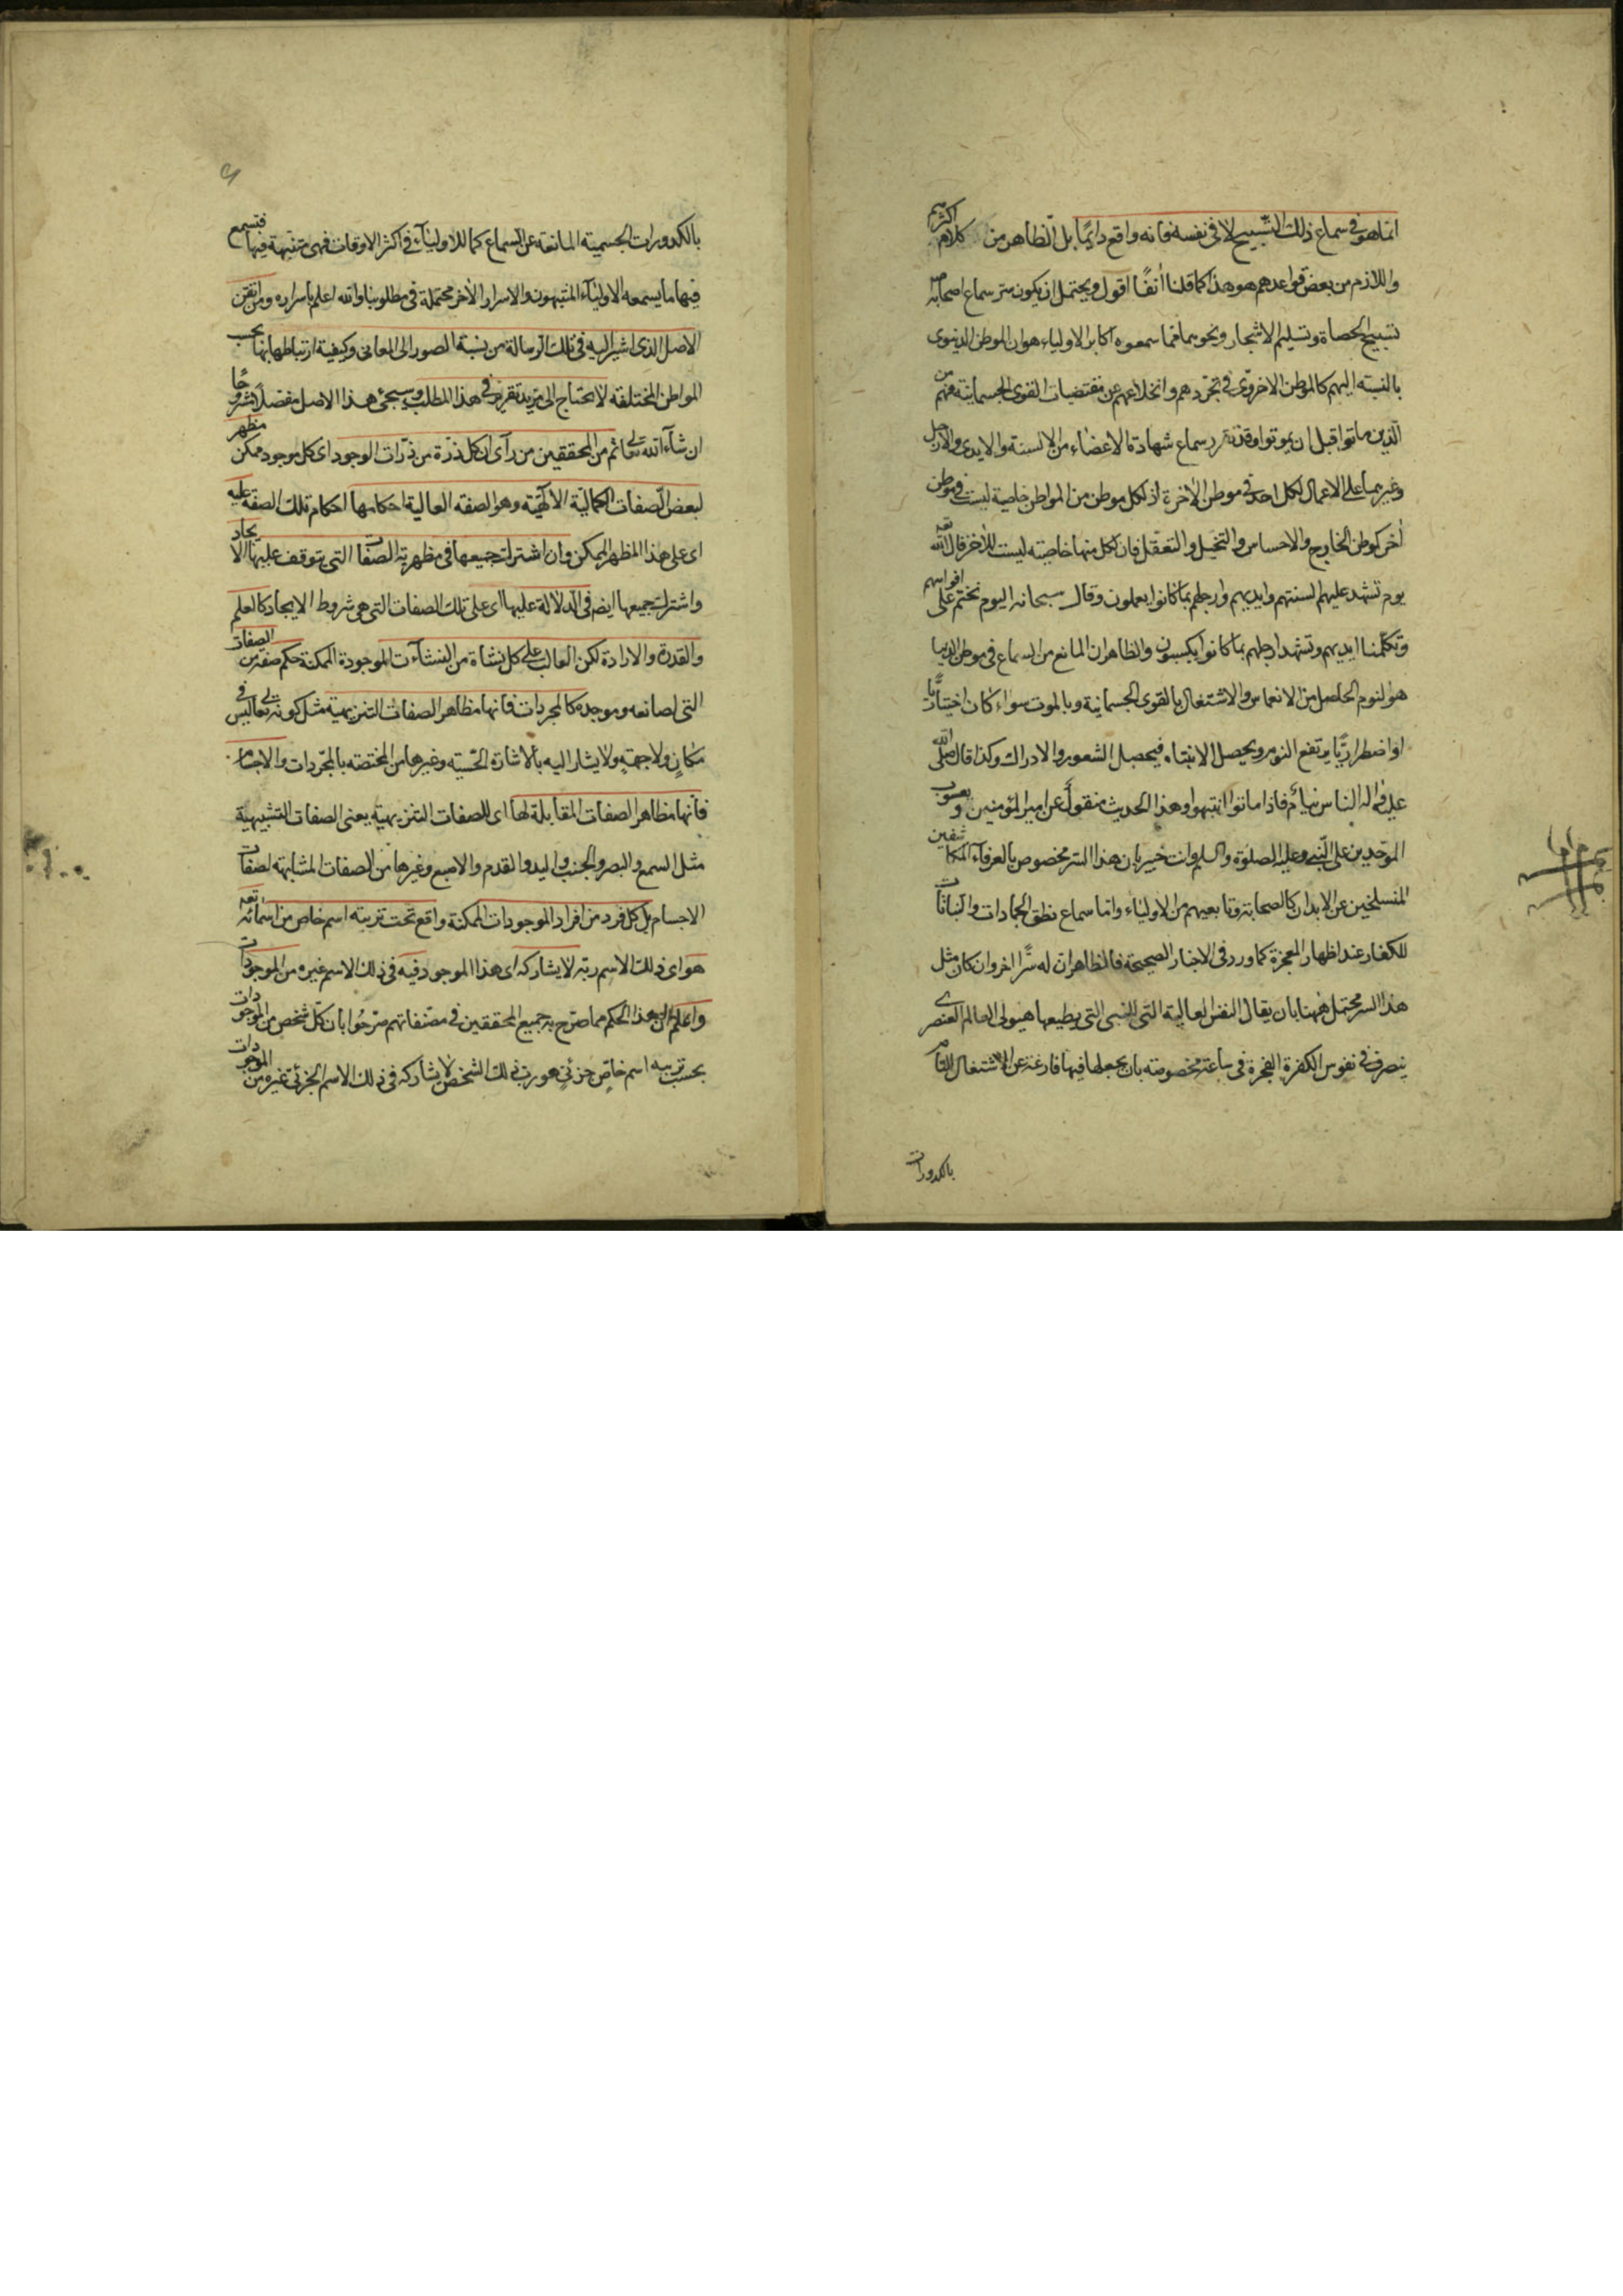 انما هو في سماع ذلك التسبيح لا في نفسه فانه واقع دايمًا بل الظاهر من كلام اكثرهم
واللازم من بعض قواعدهم هو هذا كما قلنا انفًا اقول ويحتمل ان يكون سر سماع اصحابه
تسبيح الحصاة وتسليم الاشجار ونحوهما مما سمعوه اكابر الاولياء هو ان الموطن الدنيوى
بالنسبة اليهم كالموطن الاخروى في تجردهم وانخلاعهم عن مقتضيات القوى الجسمانية فهم من
الذين ماتوا قبل ان يموتوا وقد تقرر سماع شهادة الاعضاء من الالسنة والايدى والارجل
وغيرهما على الاعمال لكل احد في موطن الاخرة اذ لكل موطن من المواطن خاصية ليست في موطن
اخر كموطن الخارج والاحساس والتخيل والتعقل فان لكل منها خاصية ليست للاخر قال الله تعه
يوم تشهد عليهم السنتهم وايديهم وارجلهم بما كانوا يعملون وقال سبحانه اليوم نختم على افواههم
وتكلمنا ايديهم وتشهد ارجلهم بما كانوا يكسبون والظاهر ان المانع من السماع في موطن الدنيا
هو النوم الحاصل من الانغماس والاشتغال بالقوى الجسمانية وبالموت سواء كان اختياريًا
او اضطراريًا يرتفع النوم ويحصل الانتباه فيحصل الشعور والادراك وكذا قال صلى الله
عليه واله الناس نيام فاذا ماتوا انتبهوا وهذا الحديث منقول عن امير المؤمنين ويعسوب
الموحدين على النبي وعليه الصلوة والسلم وانت خبير بان هذا السر مخصوص بالعرفاء المكاشفين
المنسلخين عن الابدان كالصحابة وتابعيهم من الاولياء واما سماع نطق الجمادات والنباتات
للكفار عند اظهار المعجزة كما ورد في الاخبار الصحيحة فالظاهر ان له سرًا اخر وان كان مثل
هذا السر محتمل ههنا بان يقال النفس العالية التي للنبي التي يطيعها هيولى العالم العنصرى
يتصرف في نفوس الكفرة الفجرة في ساعة مخصوصة بان يجعلها فيها فارغة عن الاشتغال التام
بالكدورات
بالكدورات الجسمية المانعة عن السماع كما للاولياء في اكثر الاوقات فهي متنبهة فيها فتسمع
فيها ما يسمعه الاولياء المتنبهون والاسرار الاخر محتملة في مطلوبنا والله اعلم باسراره ومن اتقن
الاصل الذى اشير اليه في تلك الرسالة من نسبة الصور الى المعانى وكيفية ارتباطها بها بحسب
المواطن المختلفة لا يحتاج الى مزيد تقرير في هذا المطلب وسيجئ هذا الاصل مفصلا مشروحًا
ان شاء الله تعالى ثم من المحققين من رآى ان كل ذرة من ذرات الوجود اى كل موجود ممكن مظهر
لبعض الصفات الكمالية الالهية وهو الصفة الغالبة احكامها احكام تلك الصفة عليه
اى على هذا المظهر الممكن وان اشترك جميعها في مظهرية الصفات التي يتوقف عليها الايجاد
واشترك جميعها ايضا في الدلالة عليها اى على تلك الصفات التى هى شروط الايجاد كالعلم
والقدرة والارادة لكن الغالب على كل نشاة من النشآت الموجودة الممكنة حكم صفة من الصفات
التى لصانعه وموجده كالمجردات فانها مظاهر الصفات التنزيهية مثل كونه تعالى ليس في
مكان ولا جهة ولا يشار اليه بالاشارة الحسية وغيرها من المختصة بالمجردات والاجسام
فانها مظاهر الصفات المقابلة لها اى للصفات التنزيهية يعنى الصفات التشبيهية
مثل السمع والبصر والجنب واليد والقدم والاصبع وغيرها من الصفات المشابهة لصفات
الاجسام بل كل فرد من افراد الموجودات الممكنة واقع تحت تربية اسم خاص من اسمائه تعه
هو اى ذلك الاسم ربه لا يشاركه اى هذا الموجود فيه في ذلك الاسم غيره من الموجودات
واعلم ان هذا الحكم مما صرح به جميع المحققين في مصنفاتهم صرحوا بان كل شخص من الموجودات
بحسب تربيه اسم خاص جزئي هو رب ذلك الشخص لا يشاركه في ذلك الاسم الجزئي غيره من الموجودات